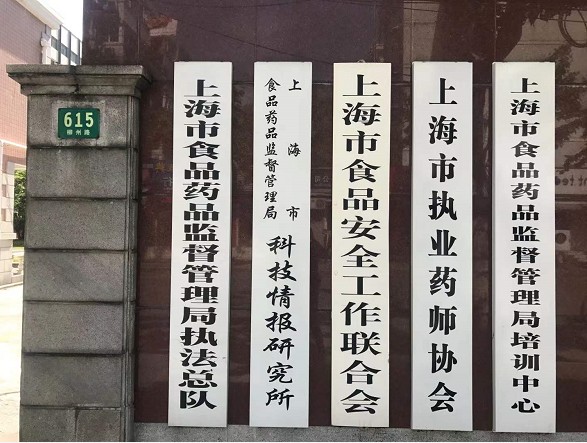 615
柳州路
上海市食品药品监督管理局执法总队
上海市
食品药品监督管理局
科技情报研究所
上海市食品安全工作联合会
上海市执业药师协会
上海市食品药品监督管理局培训中心